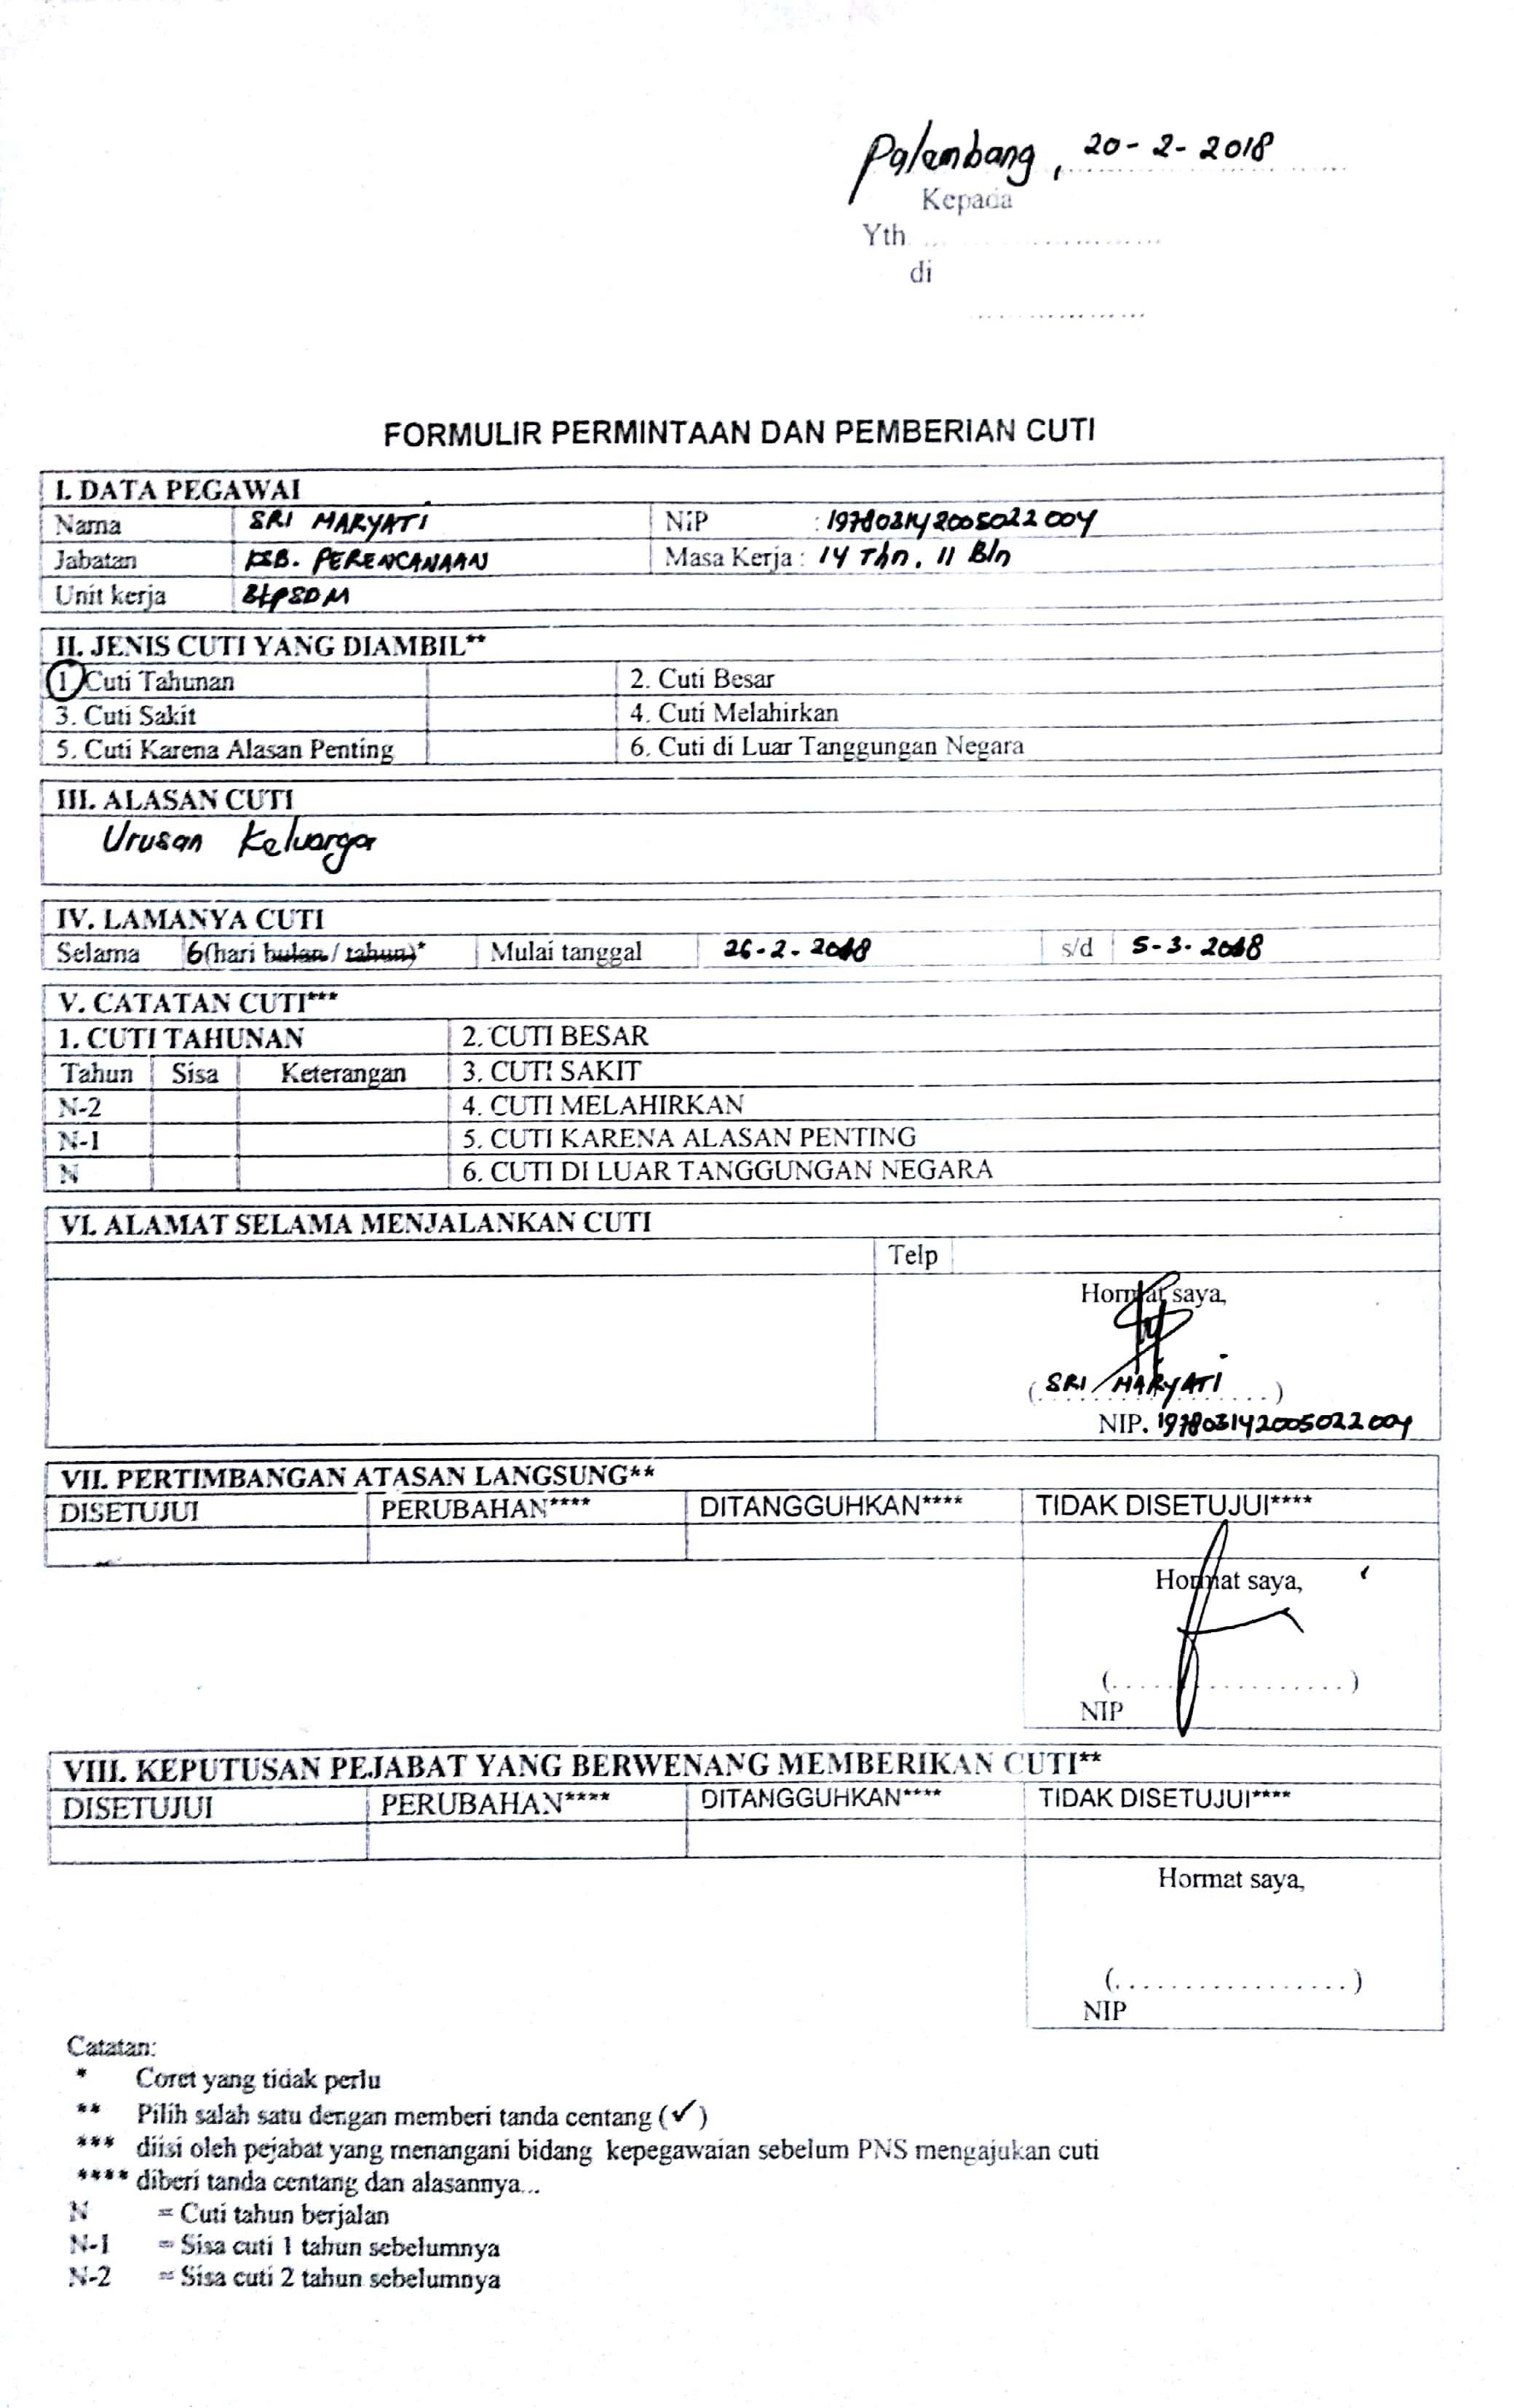 Palembang, 20-2-2018
Kepada
Yth. ........................
di
..................
FORMULIR PERMINTAAN DAN PEMBERIAN CUTI
I. DATA PEGAWAI
Nama SRI MARYATI NIP : 197803142005022004
Jabatan KSB. PERENCANAAN Masa Kerja : 14 Thn, 11 Bln
Unit kerja
II. JENIS CUTI YANG DIAMBIL**
1. Cuti Tahunan 2. Cuti Besar
3. Cuti Sakit 4. Cuti Melahirkan
5. Cuti Karena Alasan Penting 6. Cuti di Luar Tanggungan Negara
III. ALASAN CUTI
Urusan Keluarga
IV. LAMANYA CUTI
Selama 6 (hari bulan / tahun)* Mulai tanggal 26-2-2018 s/d 5-3-2018
V. CATATAN CUTI***
1. CUTI TAHUNAN 2. CUTI BESAR
Tahun Sisa Keterangan 3. CUTI SAKIT
N-2 4. CUTI MELAHIRKAN
N-1 5. CUTI KARENA ALASAN PENTING
N 6. CUTI DI LUAR TANGGUNGAN NEGARA
VI. ALAMAT SELAMA MENJALANKAN CUTI
Telp
Hormat saya,
(SRI MARYATI)
NIP. 197803142005022004
VII. PERTIMBANGAN ATASAN LANGSUNG**
DISETUJUI PERUBAHAN**** DITANGGUHKAN**** TIDAK DISETUJUI****
Hormat saya,
(..................)
NIP
VIII. KEPUTUSAN PEJABAT YANG BERWENANG MEMBERIKAN CUTI**
DISETUJUI PERUBAHAN**** DITANGGUHKAN**** TIDAK DISETUJUI****
Hormat saya,
(..................)
NIP
Catatan:
* Coret yang tidak perlu
** Pilih salah satu dengan memberi tanda centang (✓)
*** diisi oleh pejabat yang menangani bidang kepegawaian sebelum PNS mengajukan cuti
**** diberi tanda centang dan alasannya...
N = Cuti tahun berjalan
N-1 = Sisa cuti 1 tahun sebelumnya
N-2 = Sisa cuti 2 tahun sebelumnya